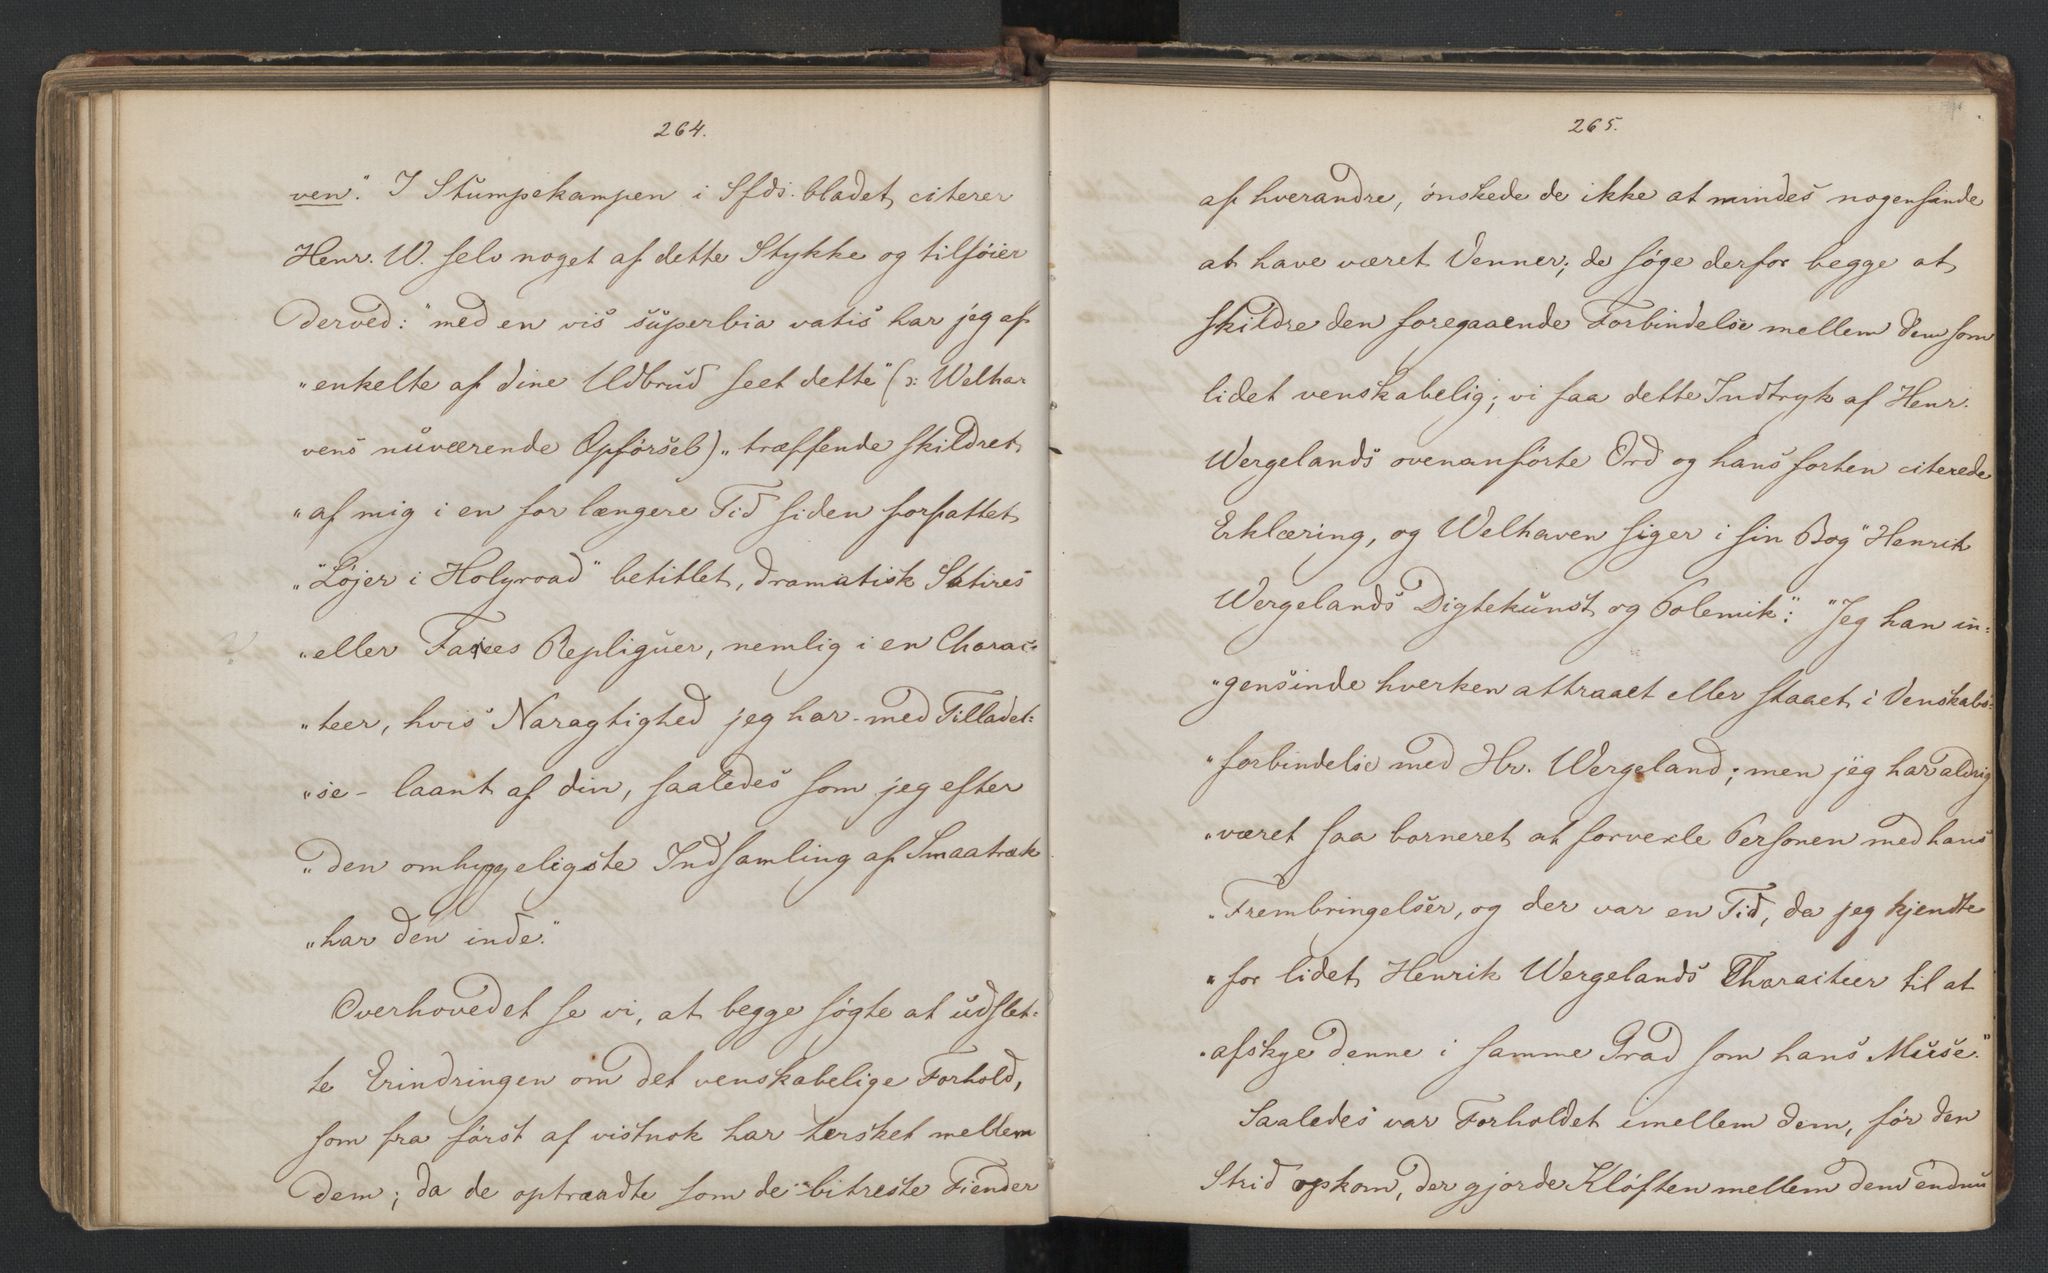 264.
ven". I Stumpekampen i Sfds. bladet citerer
Henr. W. selv noget af dette Stykke og tilføier
derved: "med en vis superbia vatis har jeg af
"enkelte af dine Udbrud seet dette" (ɔ: Welha-
vens nuværende Opførsel) "træffende skildret
"af mig i en for længere Tid siden forfattet
""Løjer i Holyroad" betitlet, dramatisk Satires
"eller Farces Repliquer, nemlig i en Charac-
"teer, hvis Naragtighed jeg har - med Tilladel=
"se - laant af din, saaledes som jeg efter
"den omhyggeligste Indsamling af Smaatræk
"har den inde."
Overhovedet se vi, at begge søgte at udslet=
te Erindringen om det venskabelige Forhold,
som fra først af vistnok har hersket mellem
dem; da de optraadte som de bitreste Fiender
265.
af hverandre, ønskede de ikke at mindes nogensinde
at have været Venner; de søge derfor begge at
skildre den foregaaende Forbindelse mellem dem som
lidet venskabelig; vi saa dette Indtryk af Henr.
Wergelands ovenanførte Ord og hans forten citerede
Erklæring, og Welhaven siger i sin Bog "Henrik
Wergelands Digtekunst og Polemik": "Jeg har in=
"gensinde hverken attraaet eller staaet i Venskabs=
"forbindelse med Hr. Wergeland; men jeg har aldrig
"været saa borneret at forvexle Personen med hans
"Frembringelser, og der var en Tid, da jeg kjendte
"for lidet Henrik Wergelands Characteer til at
"afskye denne i samme Grad som hans Muse."
Saaledes var Forholdet imellem dem, før den
Strid opkom, der gjorde Kløften mellem dem endnu